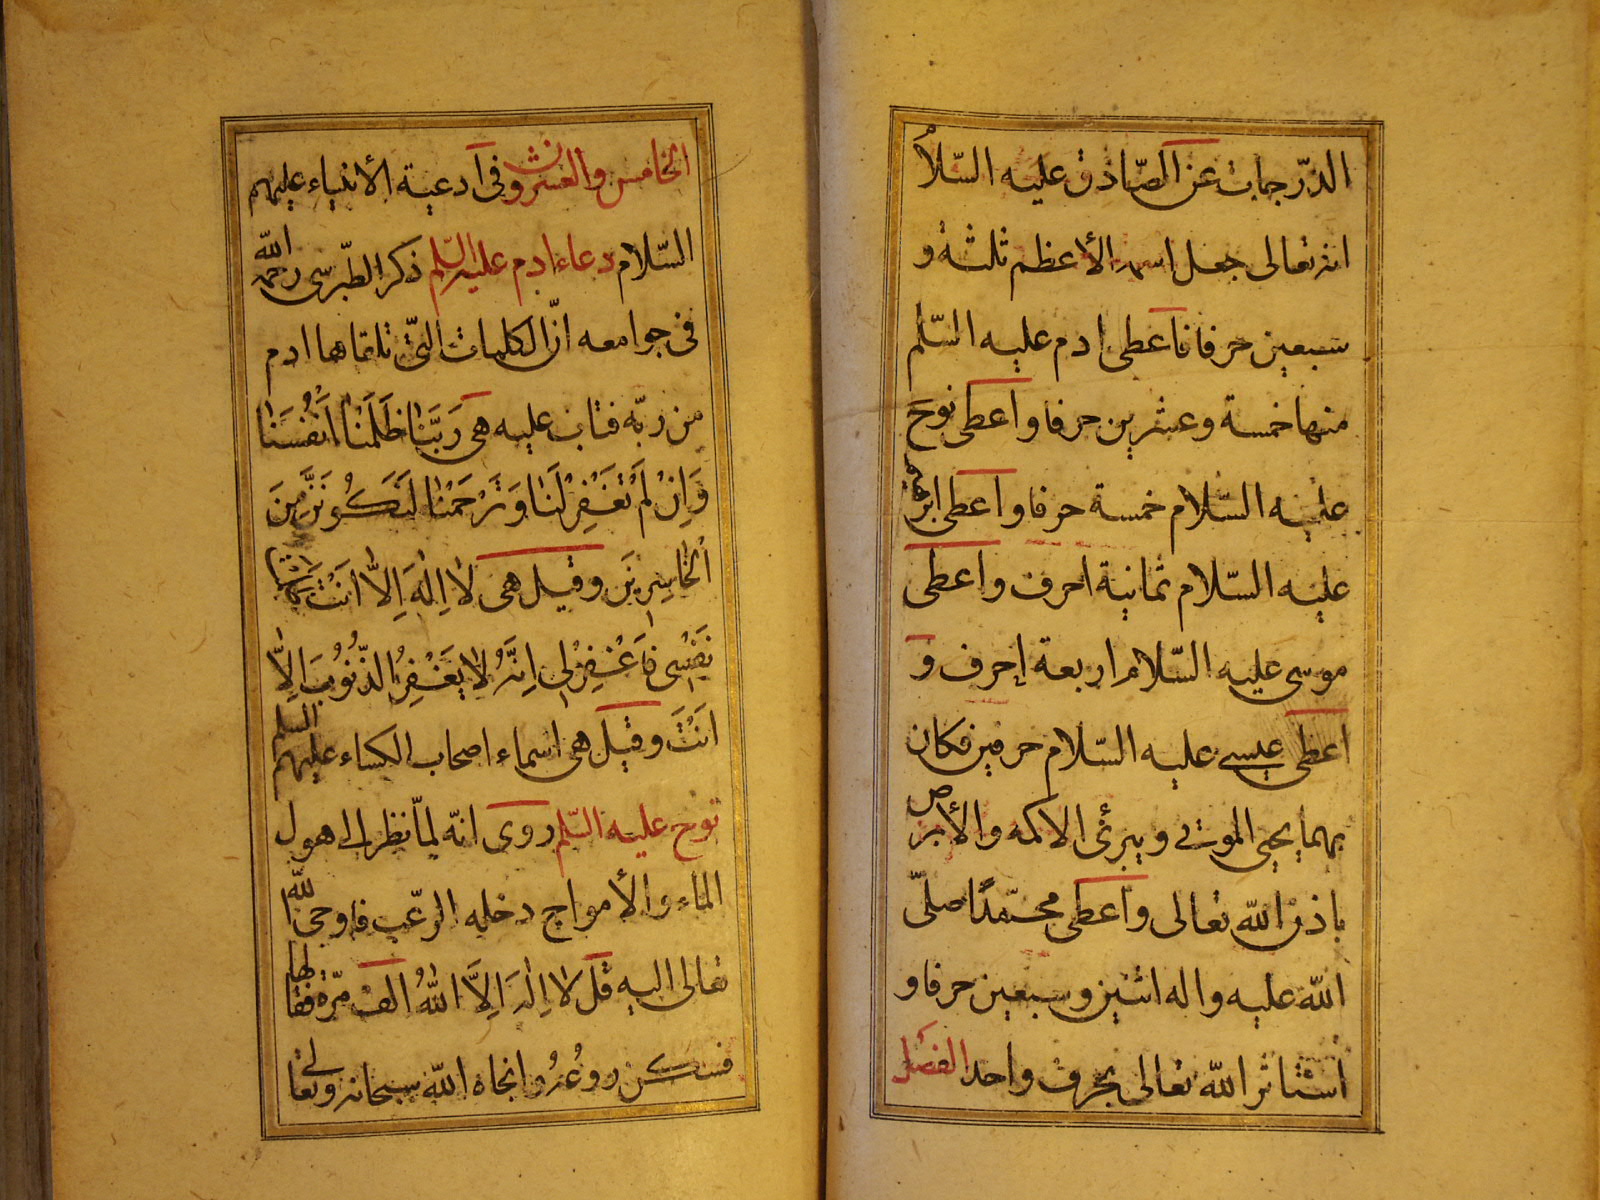 الدّرجات عن الصّادق عليه السّلام
انه تعالى جعل اسمه الأعظم ثلثة و
سبعين حرفا فاعطى ادم عليه السّلم
منها خمسة وعشرين حرفا واعطى نوح
عليه السّلام خمسة حرفا واعطى ابرهيم
عليه السّلام ثمانية احرف واعطى
موسى عليه السّلام اربعة احرف و
اعطى عيسى عليه السّلام حرفين فكان
بهما يحيى الموتى ويبرئ الاكمه والأبرص
باذن اللّه تعالى واعطى محمّدًا صلّى
اللّه عليه واله اثنين وسبعين حرفا و
استاثر اللّه تعالى بحرف واحد الفصل
الخامس والعشرون فى ادعية الأنبياء عليهم
السّلام دعاء ادم عليه السّلم ذكر الطّبرسى رحمه اللّه
فى جوامعه انّ الكلمات الّتى تلقاها ادم
من ربّه فتاب عليه هى رَبَّنَا ظَلَمْنَا اَنْفُسَنَا
وَاِنْ لَمْ تَغْفِرْ لَنَا وَتَرْحَمْنَا لَنَكُونَنَّ مِنَ
اْلخَاسِرِينَ وقيل هى لاٰ اِلٰهَ اِلاَّ اَنْتَ ظَلَمْتُ
نَفْسِى فَاغْفِرْلِى اِنَّهُ لاٰ يَغْفِرُ الذُّنُوبَ اِلاَّ
اَنْتَ وقيل هى اسماء اصحاب الكساء عليهم السلم
نوح عليه السّلم روى انّه لمّا نظر الى هول
الماء والأمواج دخله الرّعب فاوحى اللّه
تعالى اليه قل لاٰ اِلٰهَ اِلاَّ اللّٰهُ الف مرّة فقالها
فسكن روعُهُ وانجاه اللّه سبحانه وتعالى